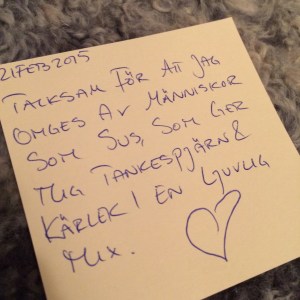 21FEB2015
TACKSAM FÖR ATT JAG
OMGES AV MÄNNISKOR
SOM SUS, SOM GER
MIG TANKESPJÄRN &
KÄRLEK I EN LJUVLIG
MIX.